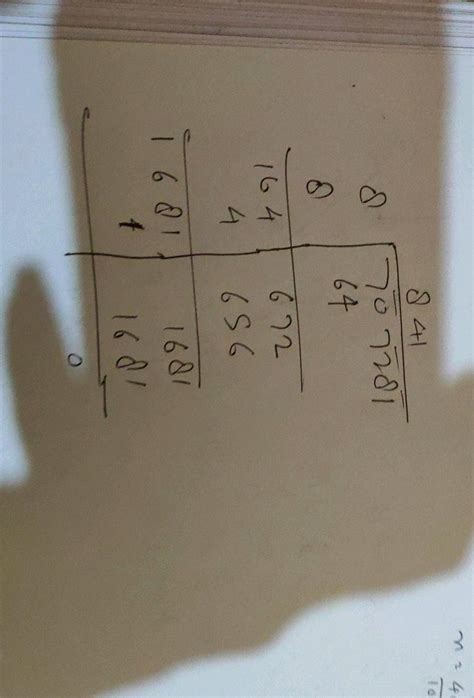 841
8 707281
8 64
164 672
4 656
1681 1681
1 1681
0
n = 4
10